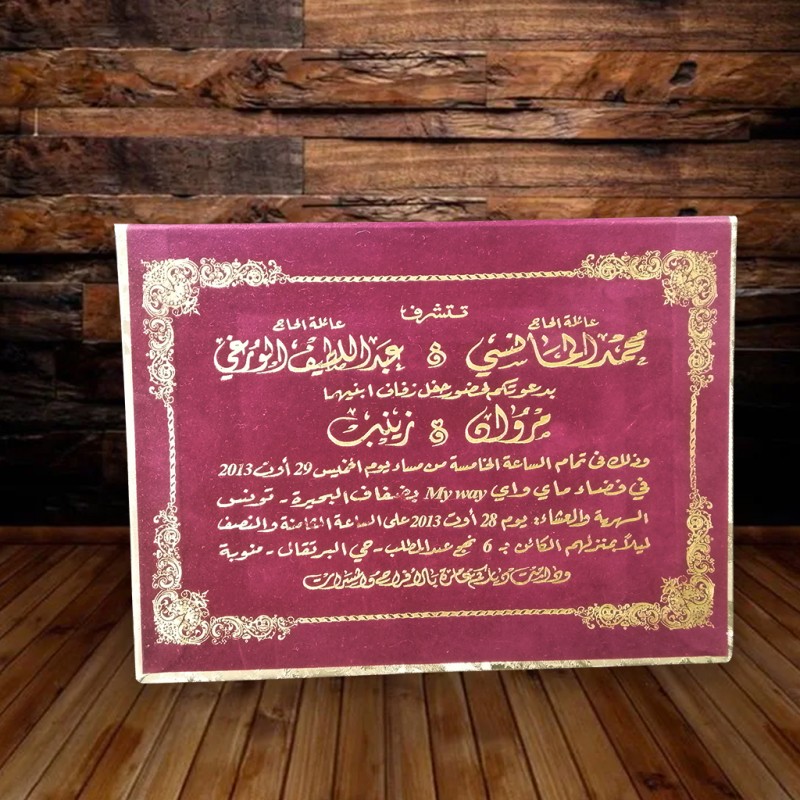 تتشرف
عائلة الحاج عائلة الحاج
محمد الخامسي & عبد اللطيف الورغي
بدعوتكم لحضور حفل زفاف ابنيهما
مروان & زينب
وذلك في تمام الساعة الخامسة من مساء يوم الخميس 29 أوت 2013
في فضاء ماي واي My way بضفاف البحيرة - تونس
السهرية والعشاء: يوم 28 أوت 2013 على الساعة الثامنة والنصف
ليلاً بمنزلهم الكائن بـ 6 نهج عبد المطلب - حي البرتقال - منوبة
ودامت دياركم عامرة بالأفراح والمسرات